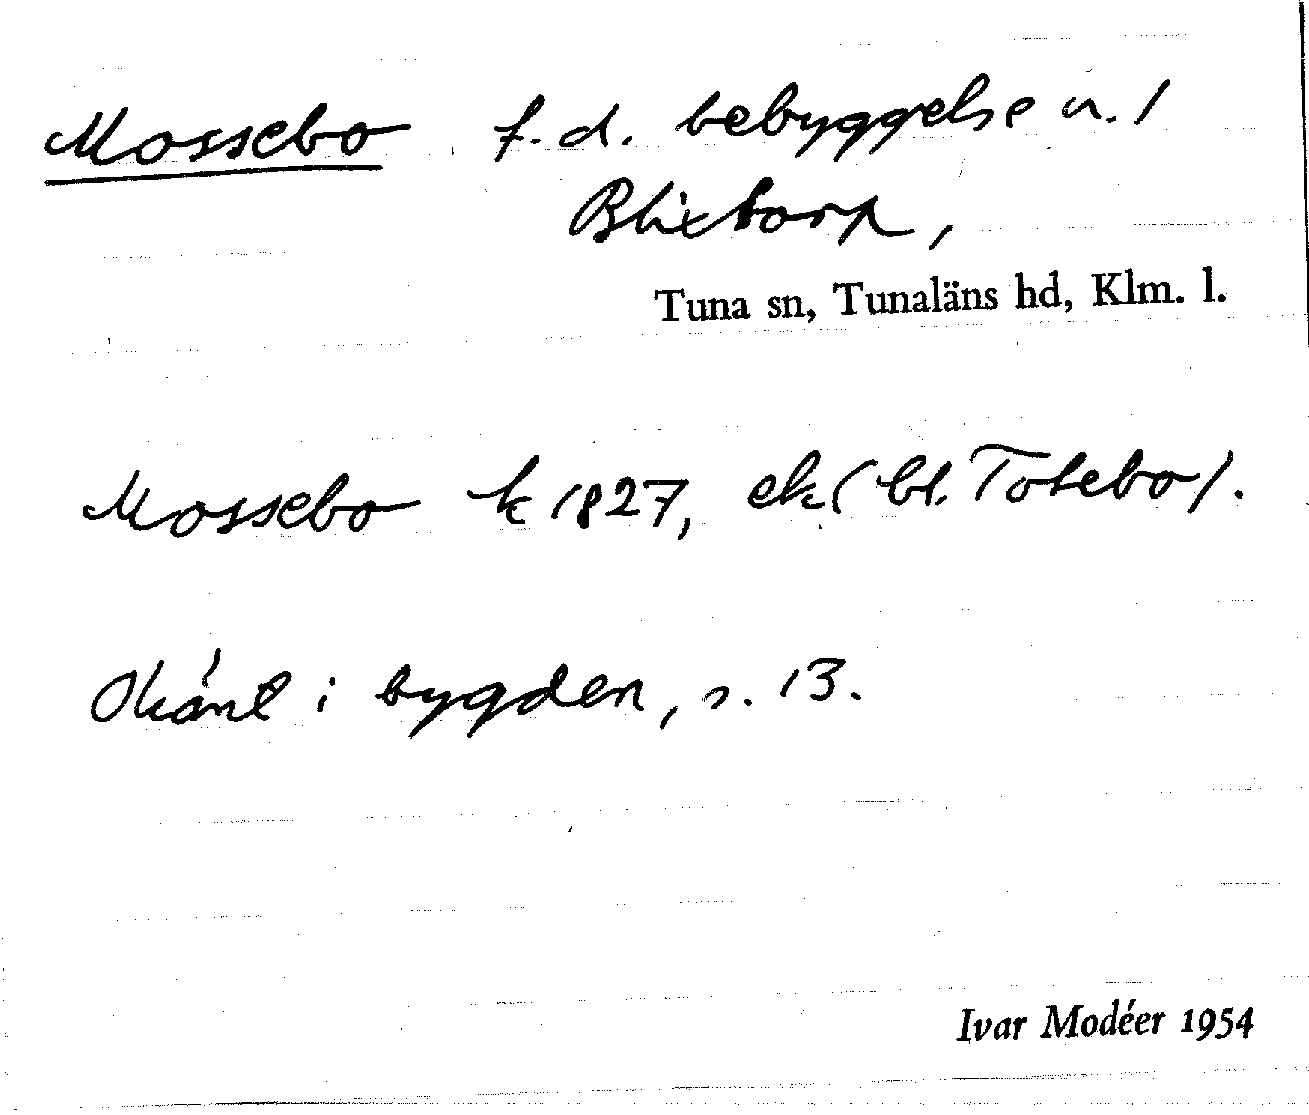 Mossebo f.d. bebyggelse u. /
Blixtorp,
Tuna sn, Tunaläns hd, Klm. l.
Mossebo k 1827, ek (bl. Totebo).
Okänt i bygden, s. 13.
Ivar Modéer 1954